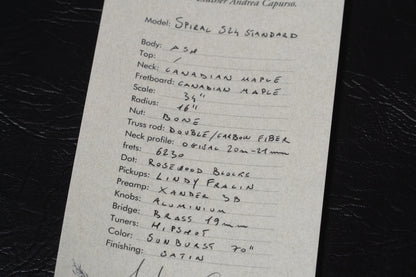 Luthier Andrea Capurso.
Model: SPIRAL S24 STANDARD
Body: ASH
Top: /
Neck: CANADIAN MAPLE
Fretboard: CANADIAN MAPLE
Scale: 34"
Radius: 16"
Nut: BONE
Truss rod: DOUBLE/CARBON FIBER
Neck profile: OGIVAL 20m-21mm
frets: 6230
Dot: ROSEWOOD BLOCKS
Pickups: LINDY FRALIN
Preamp: XANDER 3B
Knobs: ALUMINIUM
Bridge: BRASS 19mm
Tuners: HIPSHOT
Color: SUNBURST 70"
Finishing: SATIN